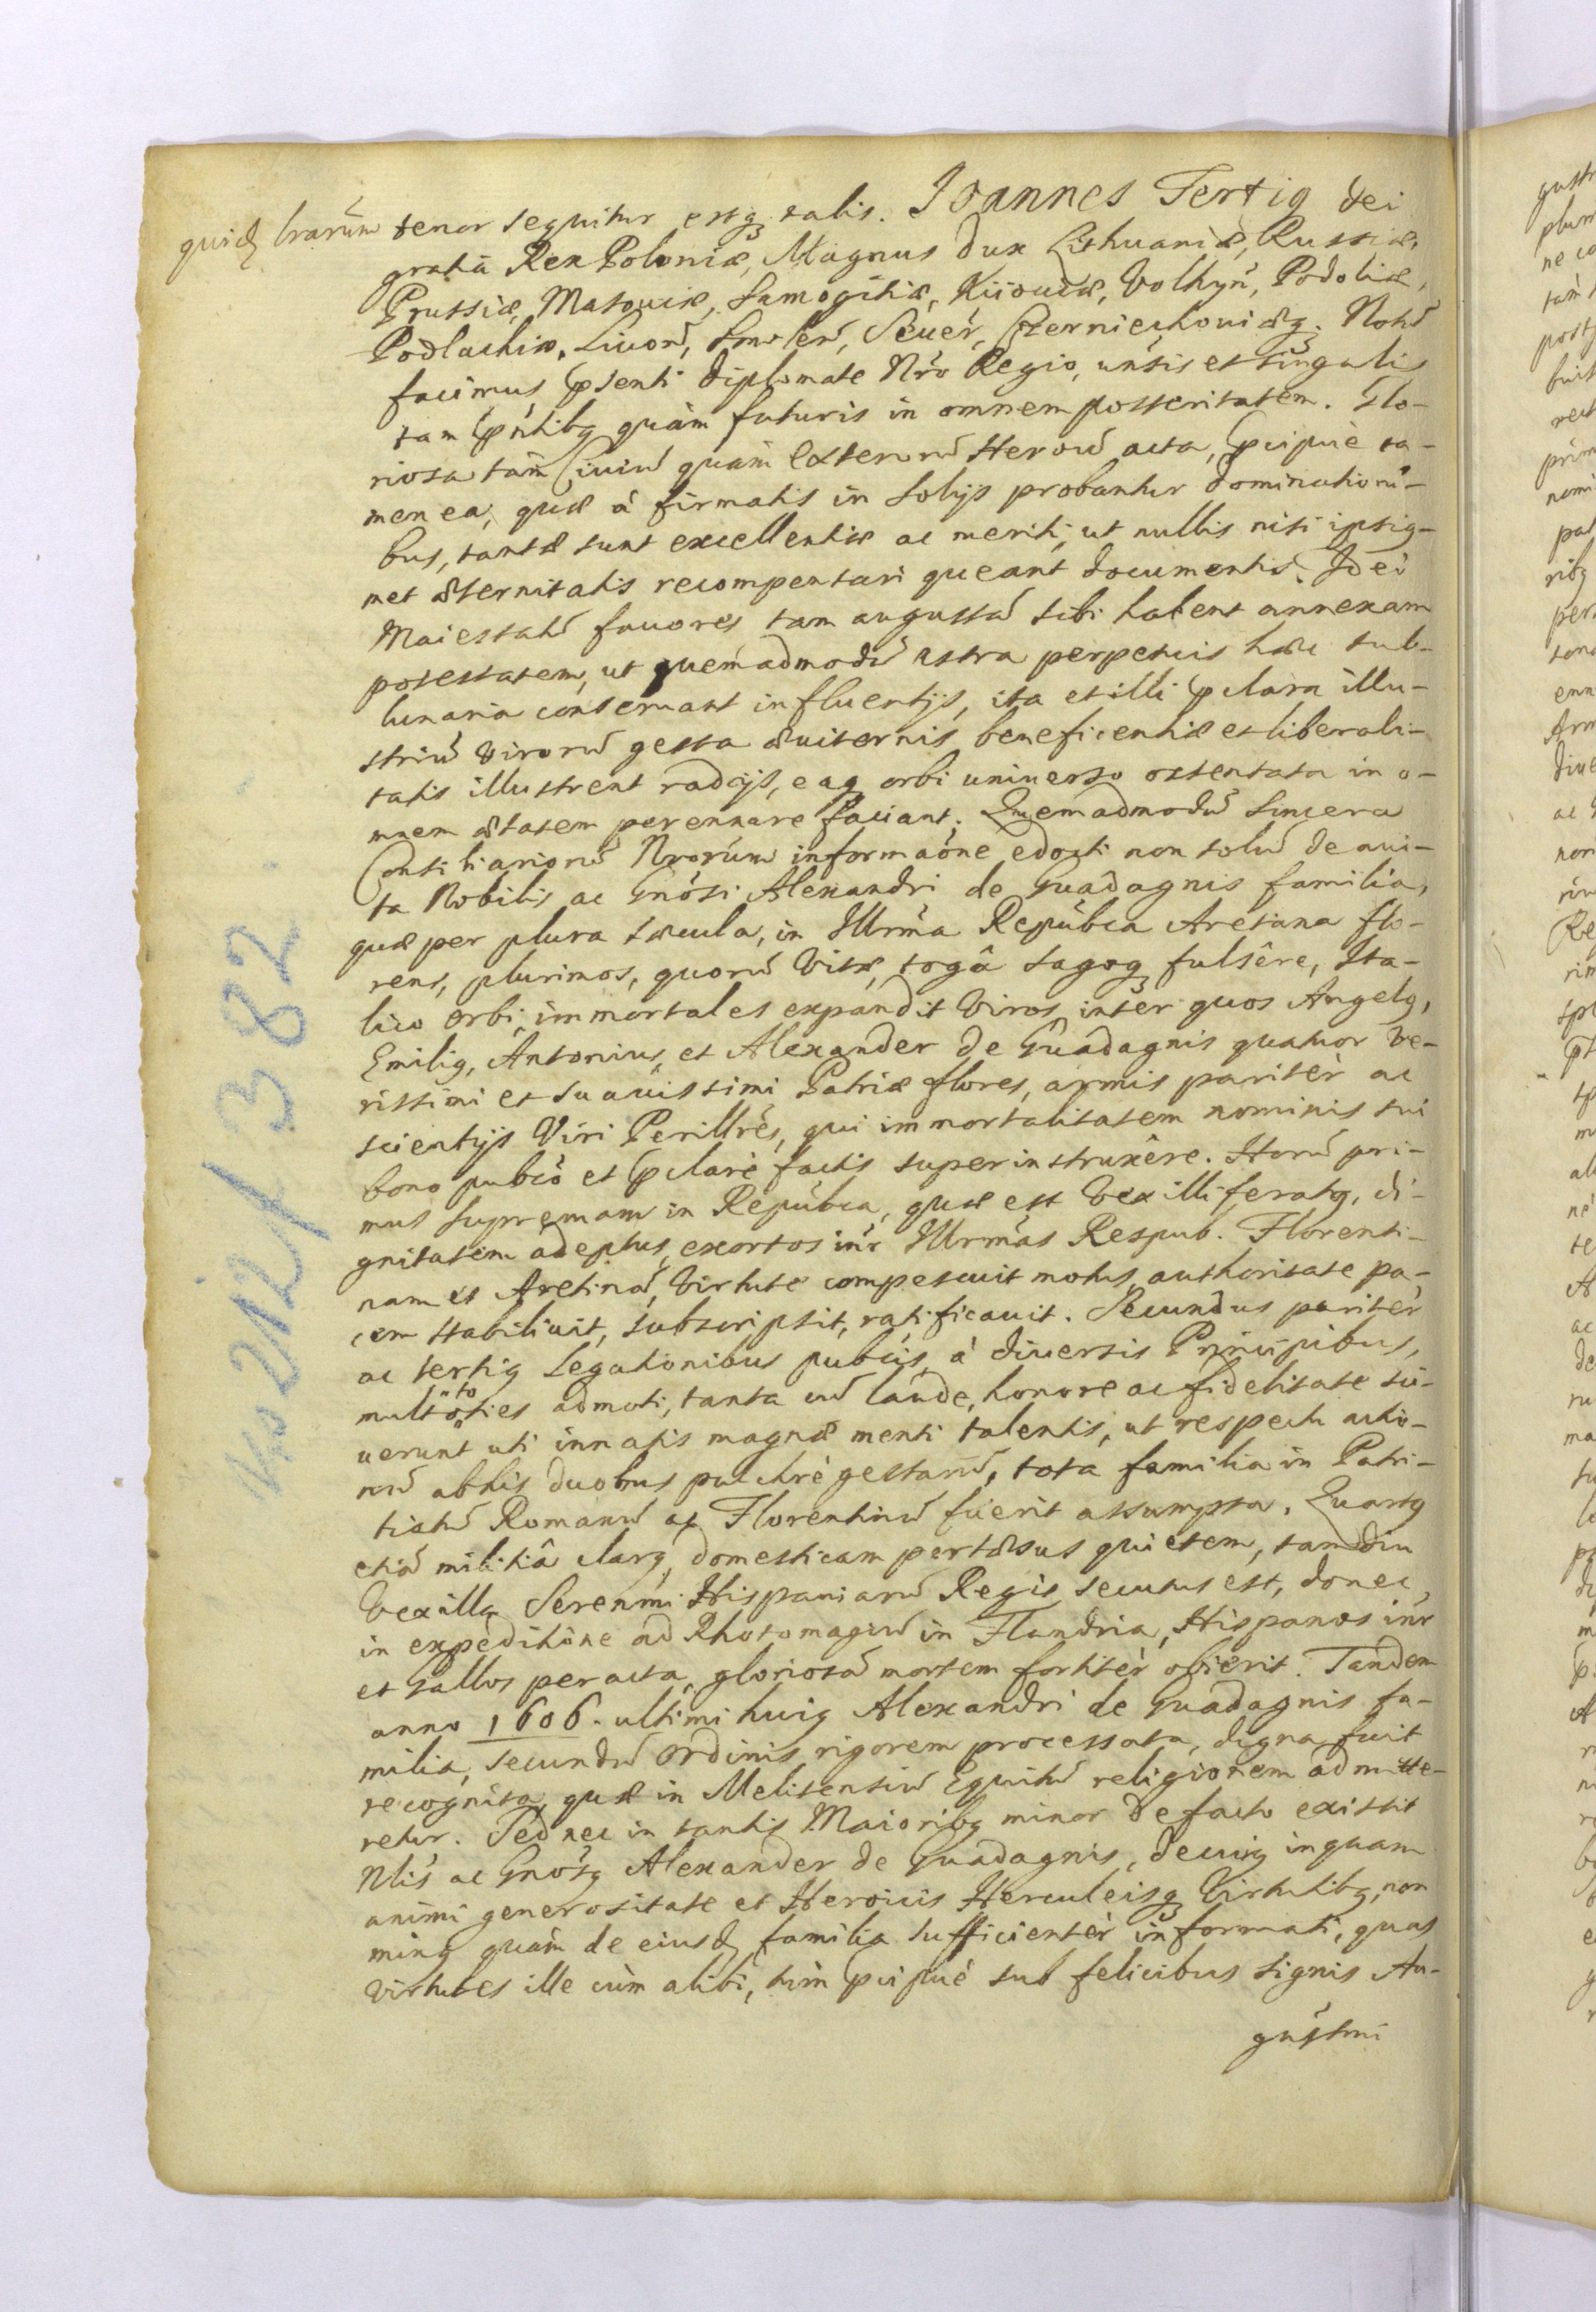 quidē lrarūm tenor sequitur estq3 talis. Joannes Tertiq Dei
gratiâ Rex Poloniæ, Magnus Dux Lithuaniæ, Russiæ,
Prussiæ, Masouiæ, Samogitiæ, Kiiouiæ, Volhyn̄, Podoliæ,
Podlachiæ, Liuon̄, Smolen̄, Seuer̄, Czerniechouiæq3. Notū
facimus Pp̄senti Diplomate Nr̄o Regio, un̄sis et singulis
tam p̄ntibq quàm futuris in omnem posteritatem. Glo-
riosa tàm Ciuiū quàm Externū Heroū acta, p̄cipuè ta-
men ea, quæ à firmatis in Solijs probantur Dominationi-
bus, tantæ sunt excellentiæ ac meriti, ut nullis nisi ipsiq-
met æternitatis recompensari queant documentis. Ideò
Maiestatū fauores tam augustā sibi habent annexam
potestatem, ut quemadmodū astra perpetuis hæc sub-
lunaria conseruant influentijs, ita et illi p̄clara illu-
striū Virorū gesta æuiternis beneficentiæ et liberali-
tatis illustrent radijs, eaq3 orbi uniuerso ostentata in o-
mnem ætatem perennare faciant. Quemadmodū Sincera
Consiliariorū Nrorūm informaōne edocti non solū de aui-
ta Nobilis ac Gn̄osi Alexandri de Guadagnis familia,
quæ per plura sæcula, in Illrm̄a Repub̄ca Aretana flo-
rens, plurimos, quorū Vitæ, togâ sagoq3 fulsêre, Ita-
lico Orbi immortales expandit Viros, inter quos Angelq,
Emiliq, Antonius, et Alexander de Guadagnis quatuor Ve-
rissimi et suauissimi Patriæ flores, armis paritèr ac
scientijs Viri Perillr̄es, qui immortalitatem nominis sui
bono pub̄co et p̄clarè factis superinstruxêre. Horū pri-
mus supremam in Repub̄ca, quæ est Vexilliferatq, di-
gnitatem adeptus, exortos int̄r Illrm̄as Respub. Florenti-
nam et Aretinā, Virtute compescuit motus, authoritate pa-
cem stabiliuit, subscripsit, ratificauit. Secundus paritèr
ac tertiq Legationibus pub̄cis, à diuersis Principibus,
multoties admoti, tanta cū laude, honore ac fidelitate su-
uerunt uti innatis magnæ menti talentis, ut respectu actio-
nū ab his duobus pulchrè gestarū, tota familia in Patri-
tiatū Romanū ac Florentinū fuerit assumpta. Quartq
etiā militiâ clarq, domesticam pertæsus quietem, tamdiu
Vexilla Seren̄mi Hispaniarū Regis secutus est, donec
in expeditiōne ad Rhotomagū in Flandria, Hispanos int̄r
et Gallos peracta, gloriosā mortem fortitèr obierit. Tandem
anno 1606. ultimi huiq Alexandri de Guadagnis fa-
milia, secundū Ordinis rigorem processata, digna fuit
recognita, quæ in Melitensiū Equitū religionem admitte-
retur. Sed nec in tantis Maioribq minor de facto existit
Nb̄lis ac Gn̄osq Alexander de Guadagnis, de cuiq inquam
animi generositate et Heroicis Herculeisq3 Virtutibq, non
minq quàm de eiusdē familia sufficientèr informati, quas
Virtutes ille cùm alibi, tùm p̄cipuè sub felicibus signis Au-
gustmi
No 212/382